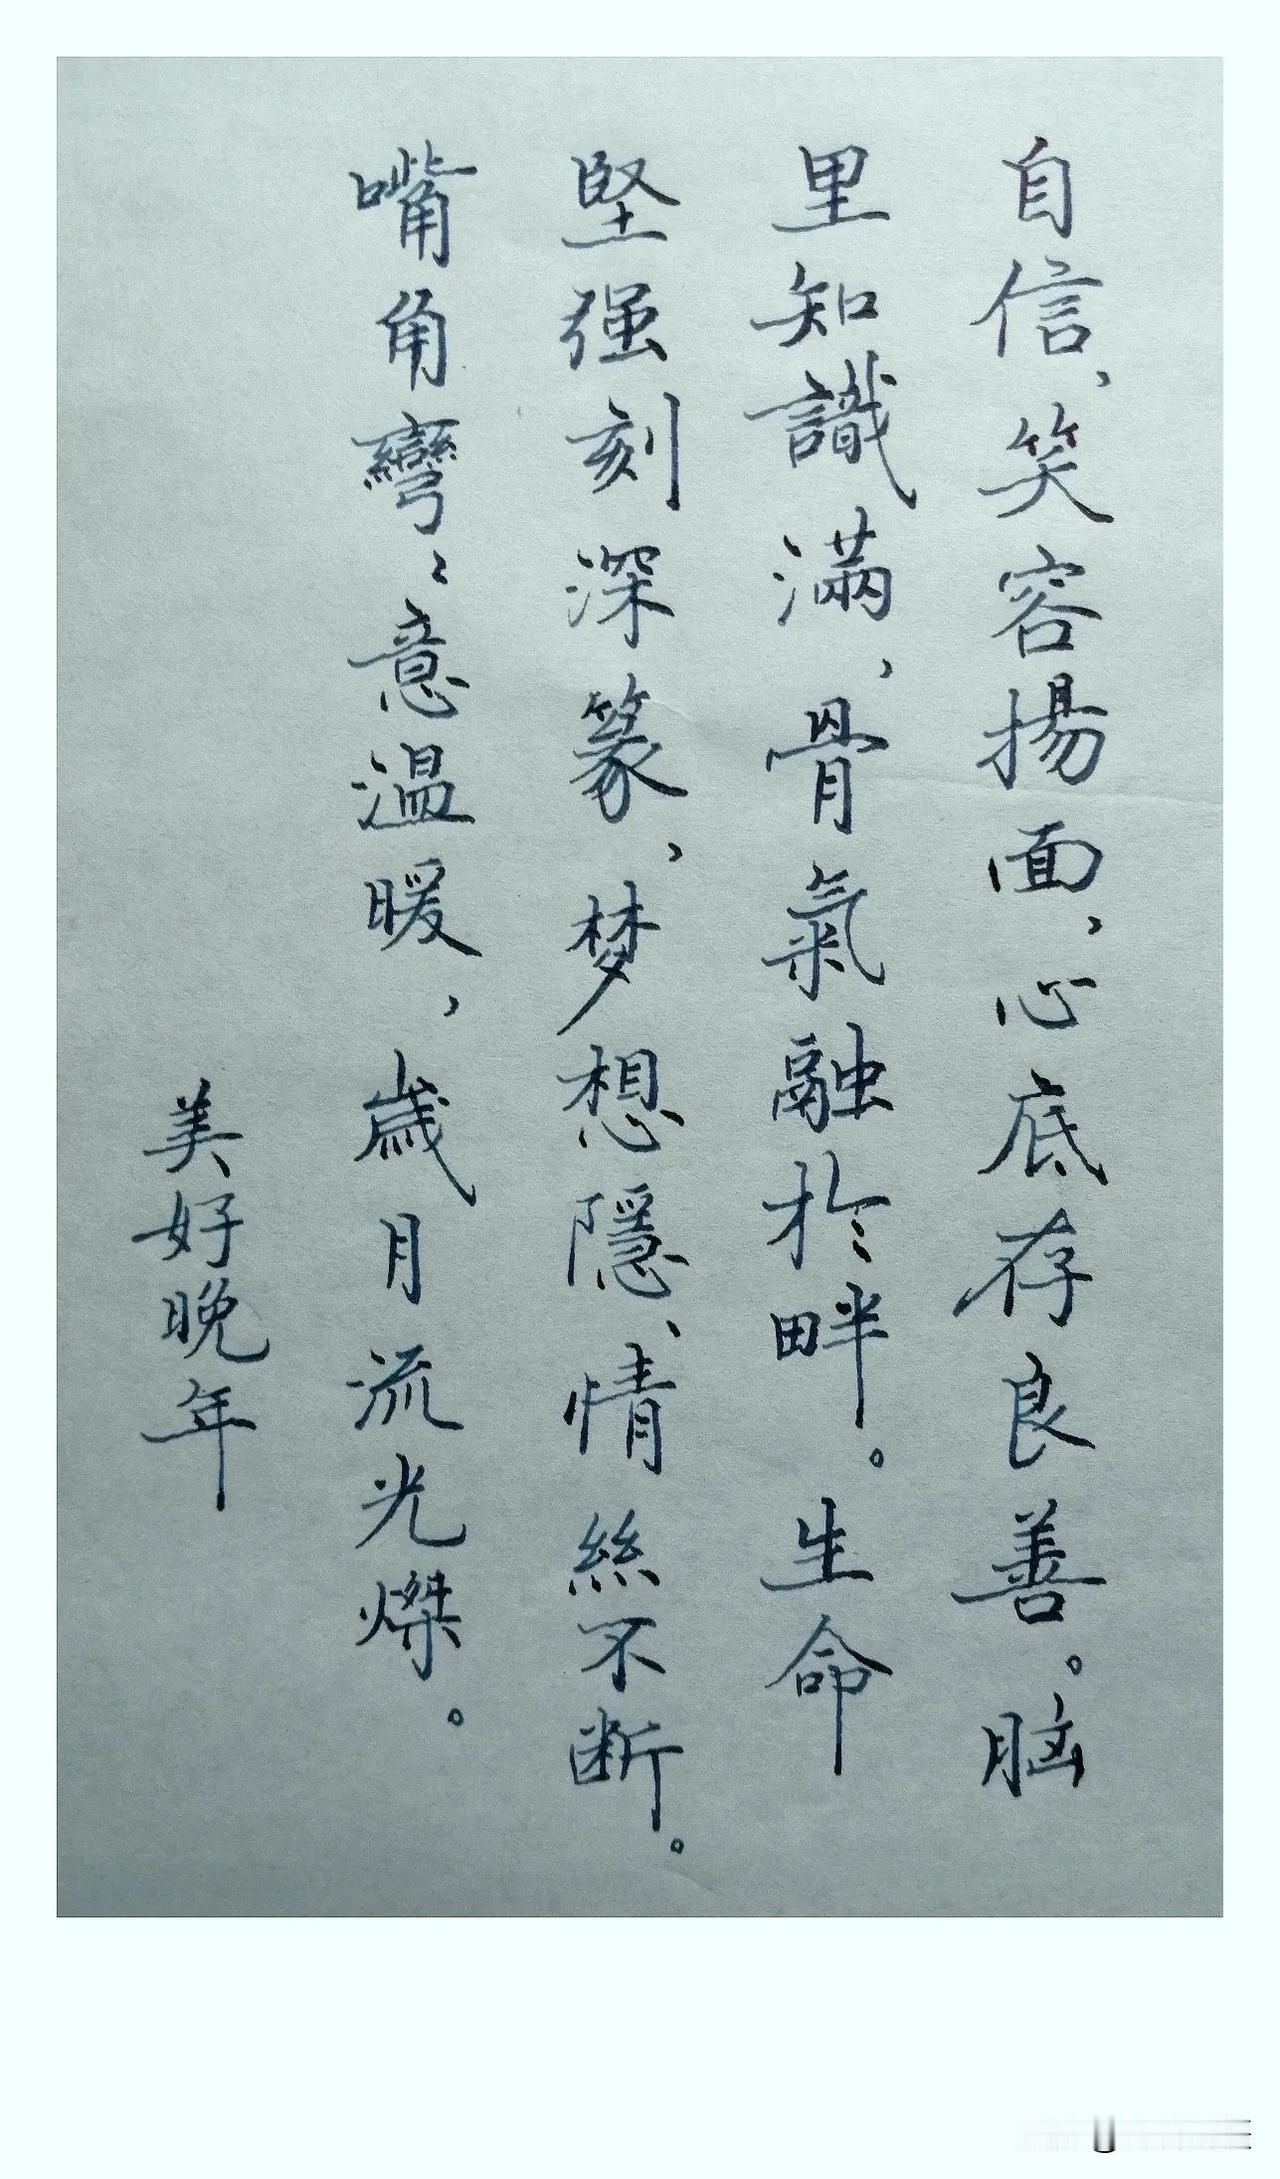 自信，笑容揚面，心底存良善。脑
里知識滿，骨氣融於畔。生命
堅强刻深篆，梦想隱、情絲不断。
嘴角彎〻意温暖，歲月流光燦。
美好晚年